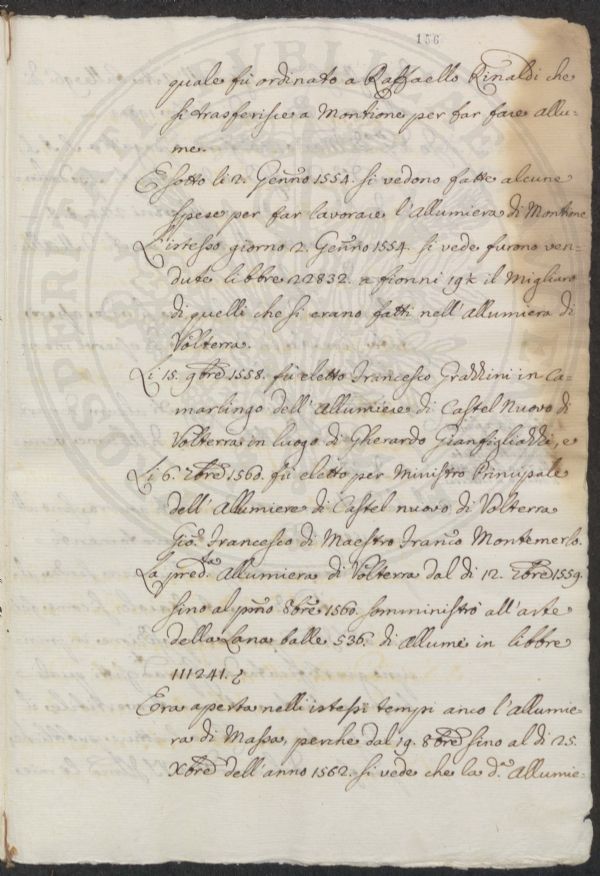 156
quale fù ordinato a Raffaello Rinaldi che
si trasferisce a Montione per far fare allu-
me.
E sotto li 2. Genn.ro 1554. si vedono fatte alcune
spese per far lavorare l'Allumiera di Montione
L'istesso giorno 2. Genn.ro 1554. si vede furono ven-
dute libbre 22832. a fiorini 19 il Migliaro
di quelli che si erano fatti nell'Allumiera di
Volterra.
Li 15. 9bre 1558. fù eletto Francesco Grazzini in Ca-
marlingo dell'Allumiere di Castel Nuovo di
Volterra in luogo di Gherardo Gianfigliazzi, e
Li 6. 7bre 1560. fù eletto per Ministro Principale
dell'Allumiere di Castel nuovo di Volterra
Gio. Francesco di Maestro Franco Montemerlo.
La pred.ta Allumiera di Volterra dal dì 12. 7bre 1559.
sino al pmo 8bre 1560. somministrò all'arte
della Lana balle 536. di Allume in libbre
111241.
Era aperta nelli istessi tempi anco l'allumie-
ra di Massa, perche dal 19. 8bre sino al dì 25.
Xbre dell'anno 1562. si vede che la d.a Allumie-